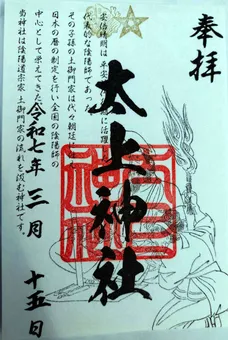 奉拝
太上神社
安倍晴明は平安
代表的な陰陽師であっ
その子孫の土御門家は代々朝廷に
日本の暦の制定を行い全国の陰陽師の
中心として栄えてきた
当神社は陰陽道宗家 土御門家の流れを汲む神社です。
令和七年 三月 十五日